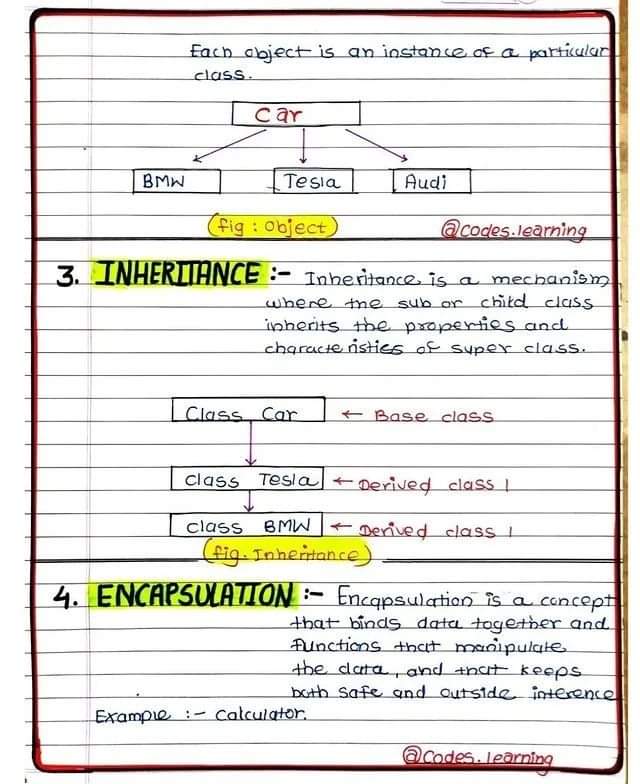 Each object is an instance of a particular
class.
Car
BMW Tesla Audi
fig : Object @codes.learning
3. INHERITANCE :- Inheritance is a mechanism
where the sub or child class
inherits the properties and
characteristics of super class.
Class Car ← Base class
class Tesla ← Derived class 1
class BMW ← Derived class 1
fig. Inheritance
4. ENCAPSULATION :- Encapsulation is a concept
that binds data together and
functions that manipulate
the data, and that keeps
both safe and outside interence
Example :- Calculator.
@Codes.learning